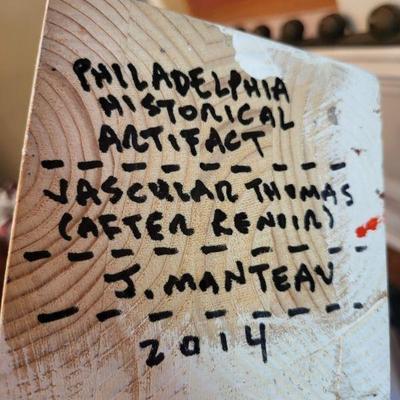 PHILADELPHIA
HISTORICAL
ARTIFACT
VASCULAR THOMAS
(AFTER RENOIR)
J. MANTEAU
2014